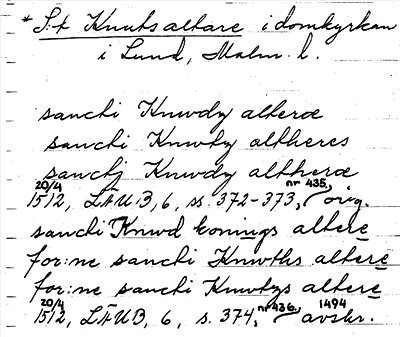 * S:t Knuts altare i domkyrkan
i Lund, Malm. l.
sancti Knwdy alteræ
sancti Knwty altheres
sanctj Knwdy altheræ
20/4 1512, LÄUB, 6, ss. 372-373, nr 435, orig.
sancti Knwd konings altere
for:ne sancti Knwths altere
for:ne sancti Knwtys altere
20/4 1512, LÄUB, 6, s. 374, nr 436, 1494 avskr.